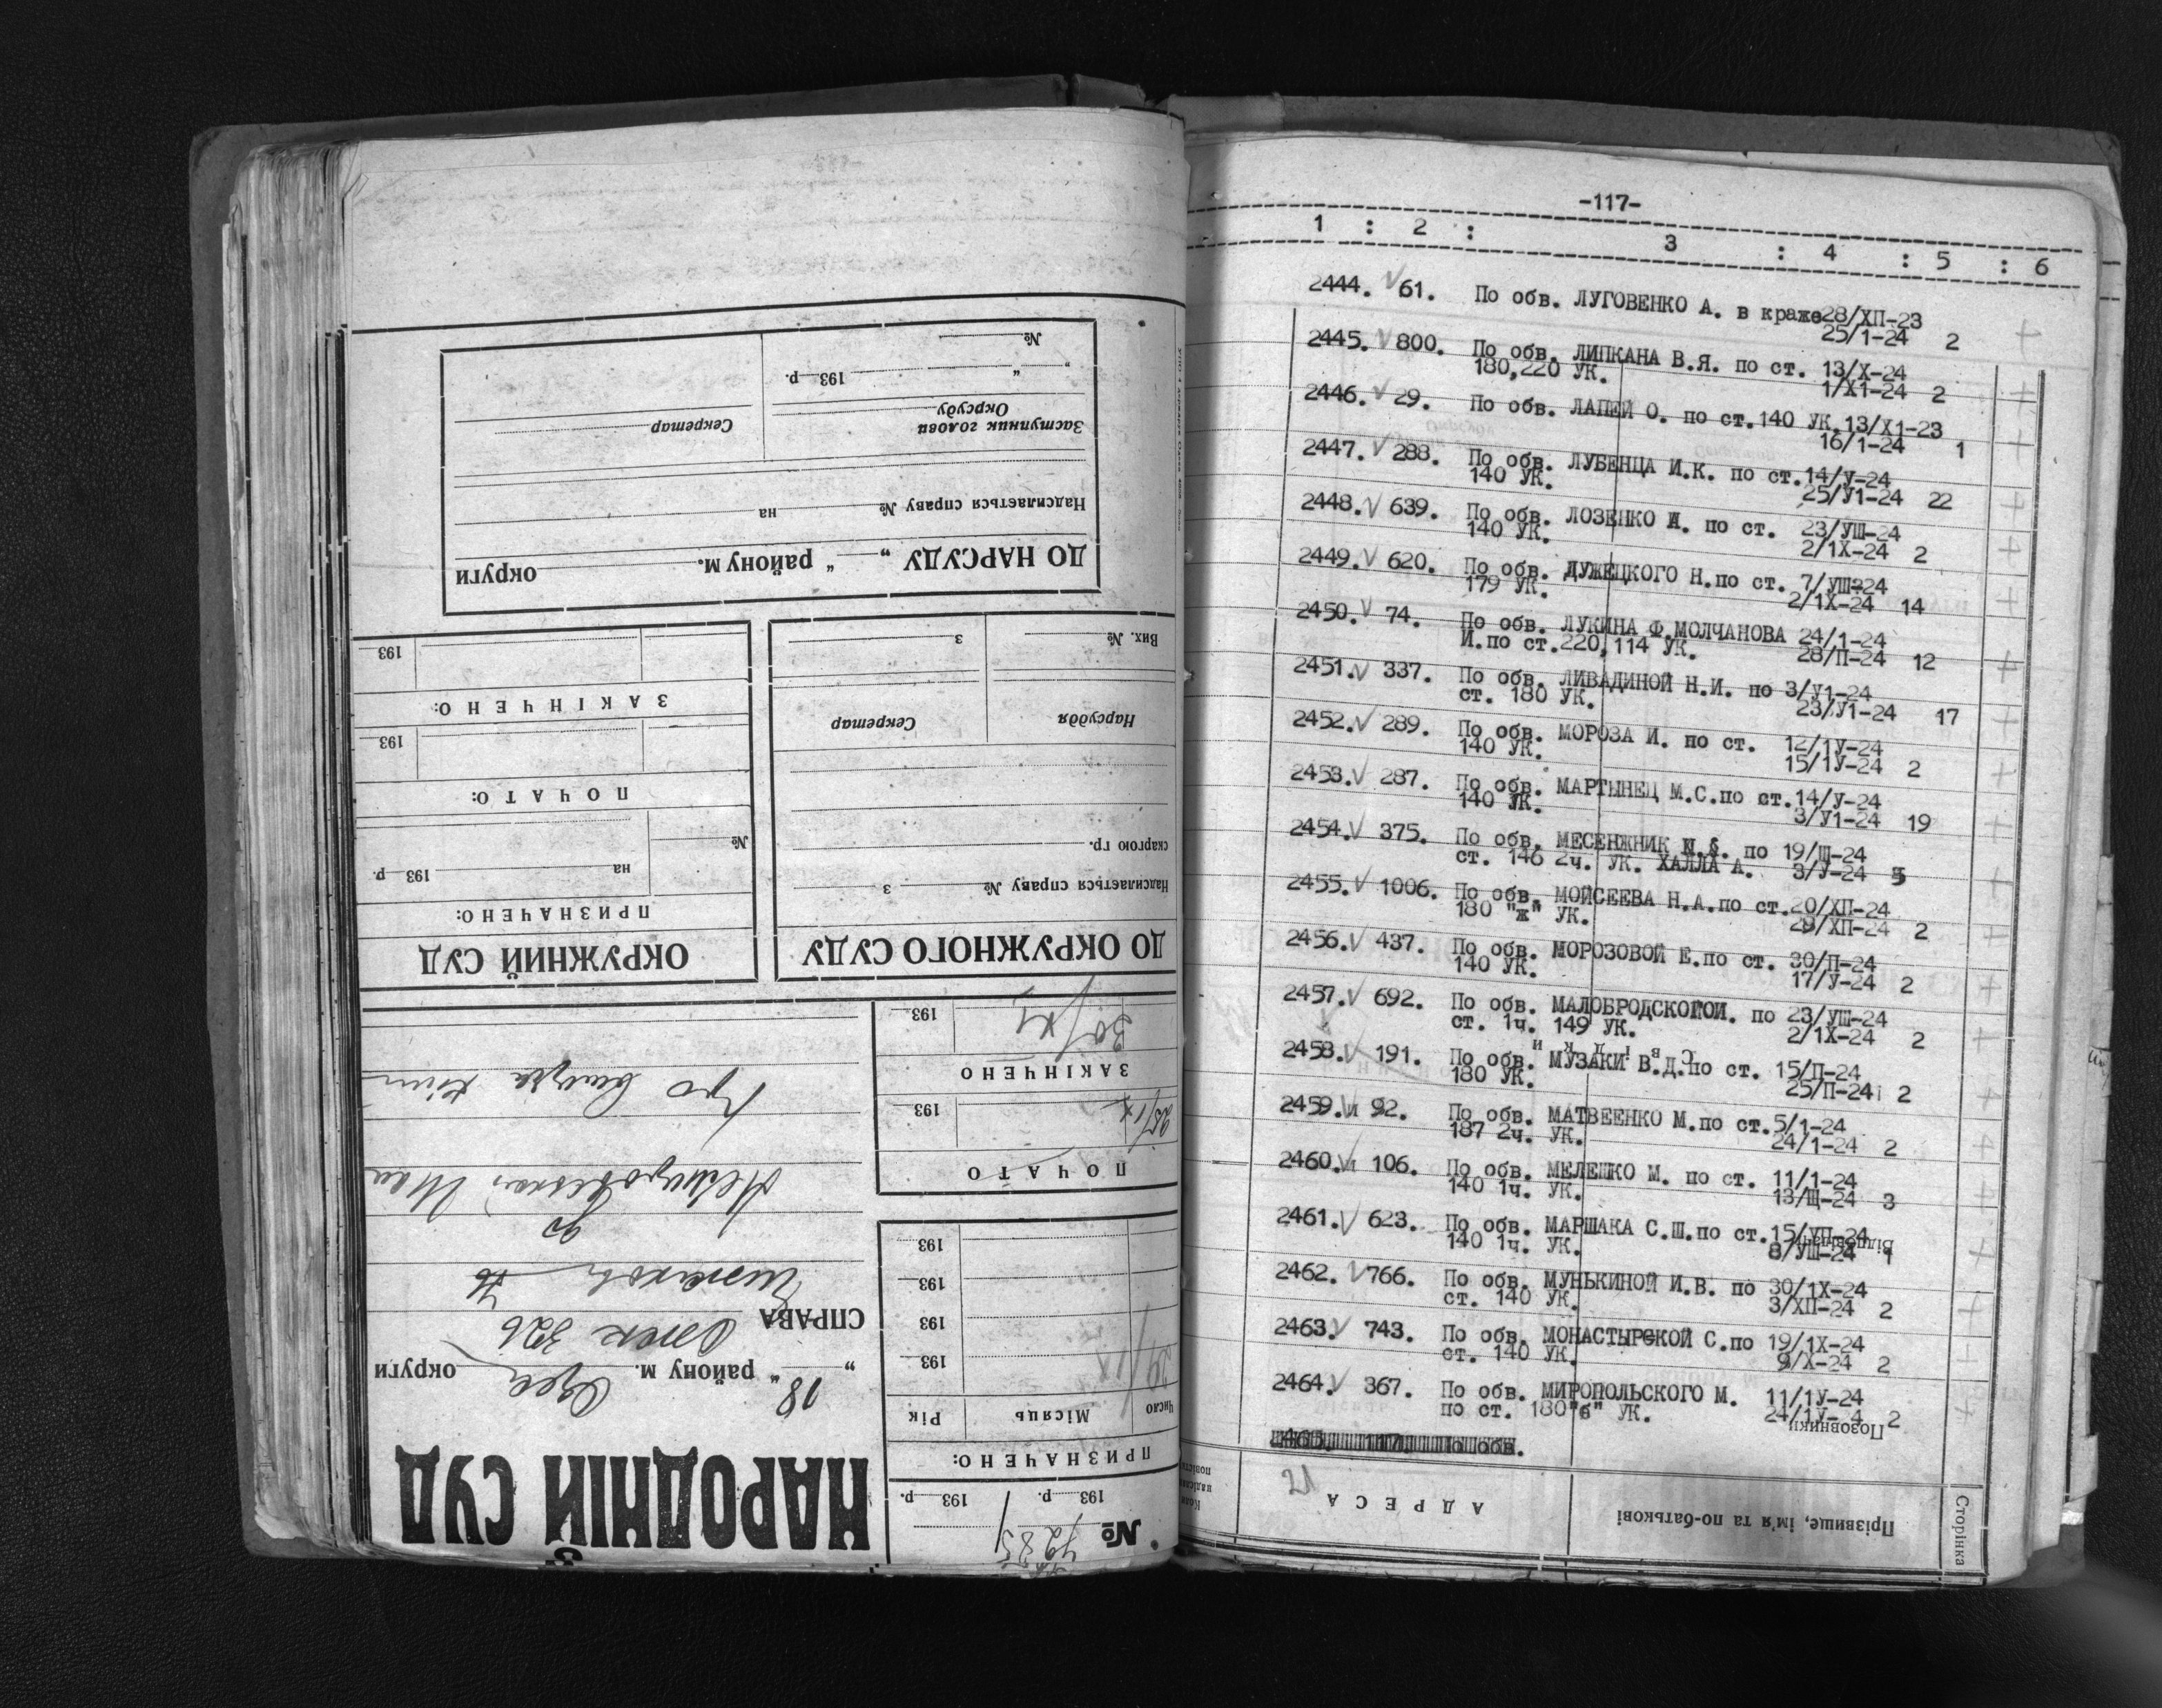 -117-
1 : 2 : 3 : 4 : 5 : 6
2444. √ 61. По обв. ЛУГОВЕНКО А. в краже 28/ХП-23
25/1-24 2
2445. √ 800. По обв. ЛИПКАНА В.Я. по ст. 13/Х-24
180,220 УК. 1/Х1-24 2
2446. √ 29. По обв. ЛАПЕЙ О. по ст.140 УК.13/Х1-23
16/1-24 1
2447. √ 288. По обв. ЛУБЕНЦА И.К. по ст.14/У-24
140 УК. 25/У1-24 22
2448. √ 639. По обв. ЛОЗЕНКО И. по ст. 23/УШ-24
140 УК. 2/1Х-24 2
2449. √ 620. По обв. ДУЖЕЦКОГО Н.по ст. 7/УШ-24
179 УК. 2/1Х-24 14
2450. √ 74. По обв. ЛУКИНА Ф.МОЛЧАНОВА 24/1-24
И.по ст.220,114 УК. 28/П-24 12
2451. √ 337. По обв. ЛИВАДИНОЙ Н.И. по 3/У1-24
ст. 180 УК. 23/У1-24 17
2452. √ 289. По обв. МОРОЗА И. по ст. 12/1У-24
140 УК. 15/1У-24 2
2453. √ 287. По обв. МАРТЫНЕЦ М.С.по ст.14/У-24
140 УК. 3/У1-24 19
2454. √ 375. По обв. МЕСЕНЖНИК по 19/Ш-24
ст. 146 2ч. УК. ХАЛЛА А. 3/У-24 5
2455. √ 1006. По обв. МОЙСЕЕВА Н.А.по ст.20/ХП-24
180 "ж" УК. 29/ХП-24 2
2456. √ 437. По обв. МОРОЗОВОЙ Е.по ст. 30/П-24
140 УК. 17/У-24 2
2457. √ 692. По обв. МАЛОБРОДСКОЙ И. по 23/УШ-24
ст. 1ч. 149 УК. 2/1Х-24 2
2458. √ 191. По обв. МУЗАКИ В.Д.по ст. 15/П-24
180 УК. 25/П-24 2
2459. √ 92. По обв. МАТВЕЕНКО М.по ст.5/1-24
187 2ч. УК. 24/1-24 2
2460. √ 106. По обв. МЕЛЕШКО М. по ст. 11/1-24
140 1ч. УК. 13/Щ-24 3
2461. √ 623. По обв. МАРШАКА С.Ш.по ст.15/УП-24
140 1ч. УК. 8/УШ-24 1
2462. √ 766. По обв. МУНЬКИНОЙ И.В. по 30/1Х-24
ст. 140 УК. 3/ХП-24 2
2463. √ 743. По обв. МОНАСТЫРСКОЙ С.по 19/1Х-24
ст. 140 УК. 9/Х-24 2
2464. √ 367. По обв. МИРОПОЛЬСКОГО М. 11/1У-24
по ст. 180"б" УК. 24/1У- 4 2
21
Свідки
Позовники
Сторінка
Прізвище, ім'я та по-батькові
АДРЕСА
№ 7285
193 р. 193 р.
ПРИЗНАЧЕНО:
Число Місяць Рік
29/IX 193
193
193
193
ПОЧАТО
25/IX 193
ЗАКІНЧЕНО
30/XI 193
НАРОДНІЙ СУД
„ 18 “ району м. округи
СПРАВА
ДО ОКРУЖНОГО СУДУ
Надсилається справу № з
скаргою гр.
Нарсуддя Секретар
Вих. № з
ОКРУЖНИЙ СУД
ПРИЗНАЧЕНО:
№ на 193 р.
ПОЧАТО:
193
ЗАКІНЧЕНО:
193
ДО НАРСУДУ „ “ району м. округи
Надсилається справу № на
Заступник голови
Окрсуду Секретар
„ “ 193 р.
№